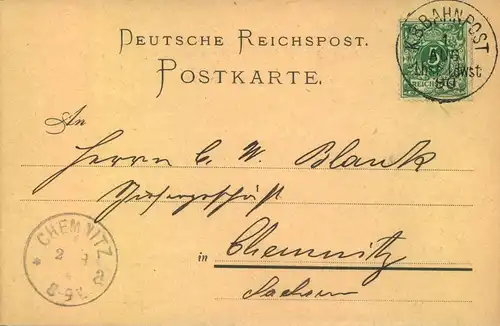 DEUTSCHE REICHSPOST.
POSTKARTE.
K.B.BAHNPOST
An
Herrn C. W. Blank
in Chemnitz
Sachsen
CHEMNITZ
2
8-9V.